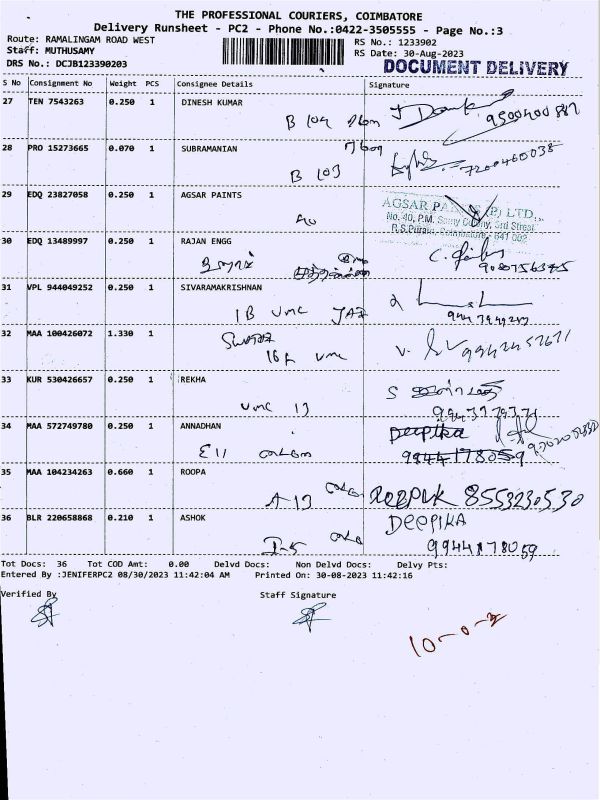 THE PROFESSIONAL COURIERS, COIMBATORE
Delivery Runsheet - PC2 - Phone No.:0422-3505555 - Page No.:3
Route: RAMALINGAM ROAD WEST
RS No.: 1233902
Staff: MUTHUSAMY
RS Date: 30-Aug-2023
DRS No.: DCJB123390203
DOCUMENT DELIVERY
S No Consignment No Weight PCS Consignee Details Signature
27 TEN 7543263 0.250 1 DINESH KUMAR
B 104
28 PRO 15273665 0.070 1 SUBRAMANIAN
B 103
7200460038
29 EDQ 23827058 0.250 1 AGSAR PAINTS
40
AGSAR PAINTS (P) LTD.,
No. 40, P.M. Samy Colony, 3rd Street
R.S.Puram, Coimbatore - 641 002
30 EDQ 13489997 0.250 1 RAJAN ENGG
31 VPL 944049252 0.250 1 SIVARAMAKRISHNAN
1B VMC
32 MAA 100426072 1.330 1
16A VMC
33 KUR 530426657 0.250 1 REKHA
VMC 13
34 MAA 572749780 0.250 1 ANNADHAN
Deepika
E11
9944178059
35 MAA 104234263 0.660 1 ROOPA
A 13
8553230530
36 BLR 220658868 0.210 1 ASHOK
DEEPIKA
I-5
9944178059
Tot Docs: 36 Tot COD Amt: 0.00 Delvd Docs: Non Delvd Docs: Delvy Pts:
Entered By :JENIFERPC2 08/30/2023 11:42:04 AM Printed On: 30-08-2023 11:42:16
Verified By Staff Signature